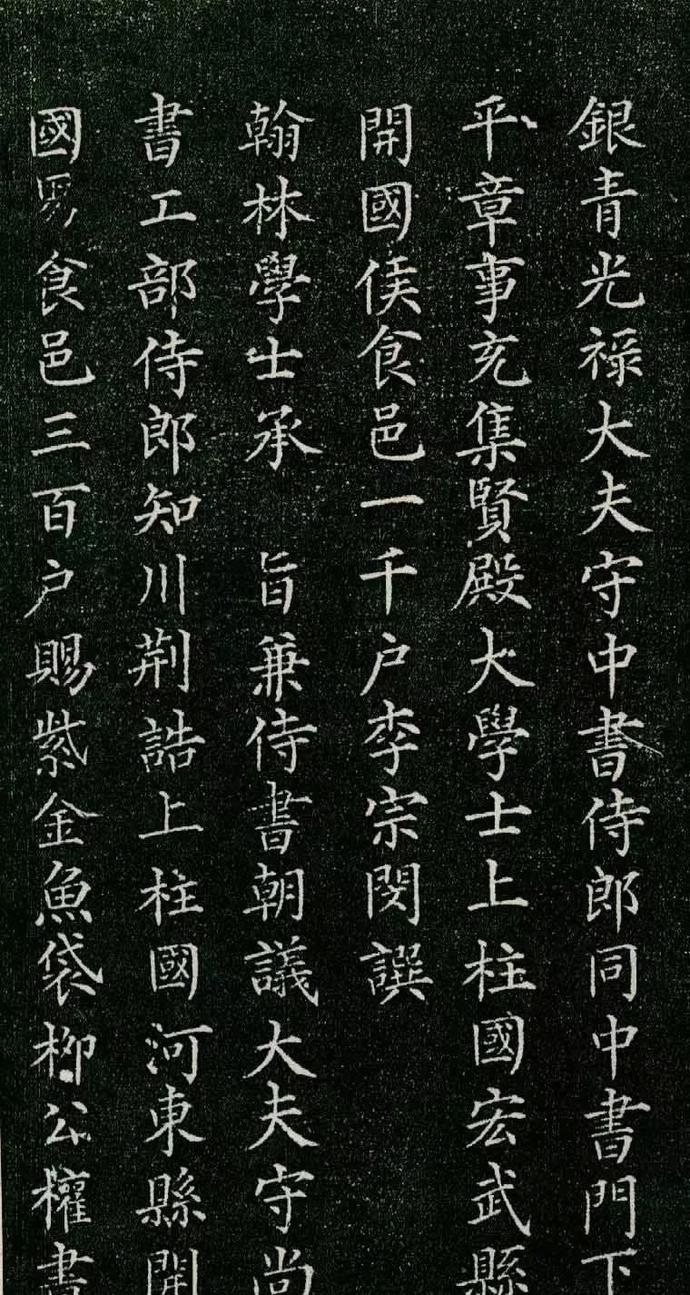 銀青光祿大夫守中書侍郎同中書門下
平章事充集賢殿大學士上柱國宏武縣
開國侯食邑一千户李宗閔譔
翰林學士承 旨兼侍書朝議大夫守尚
書工部侍郎知川荆誥上柱國河東縣開
國男食邑三百户賜紫金魚袋柳公權書